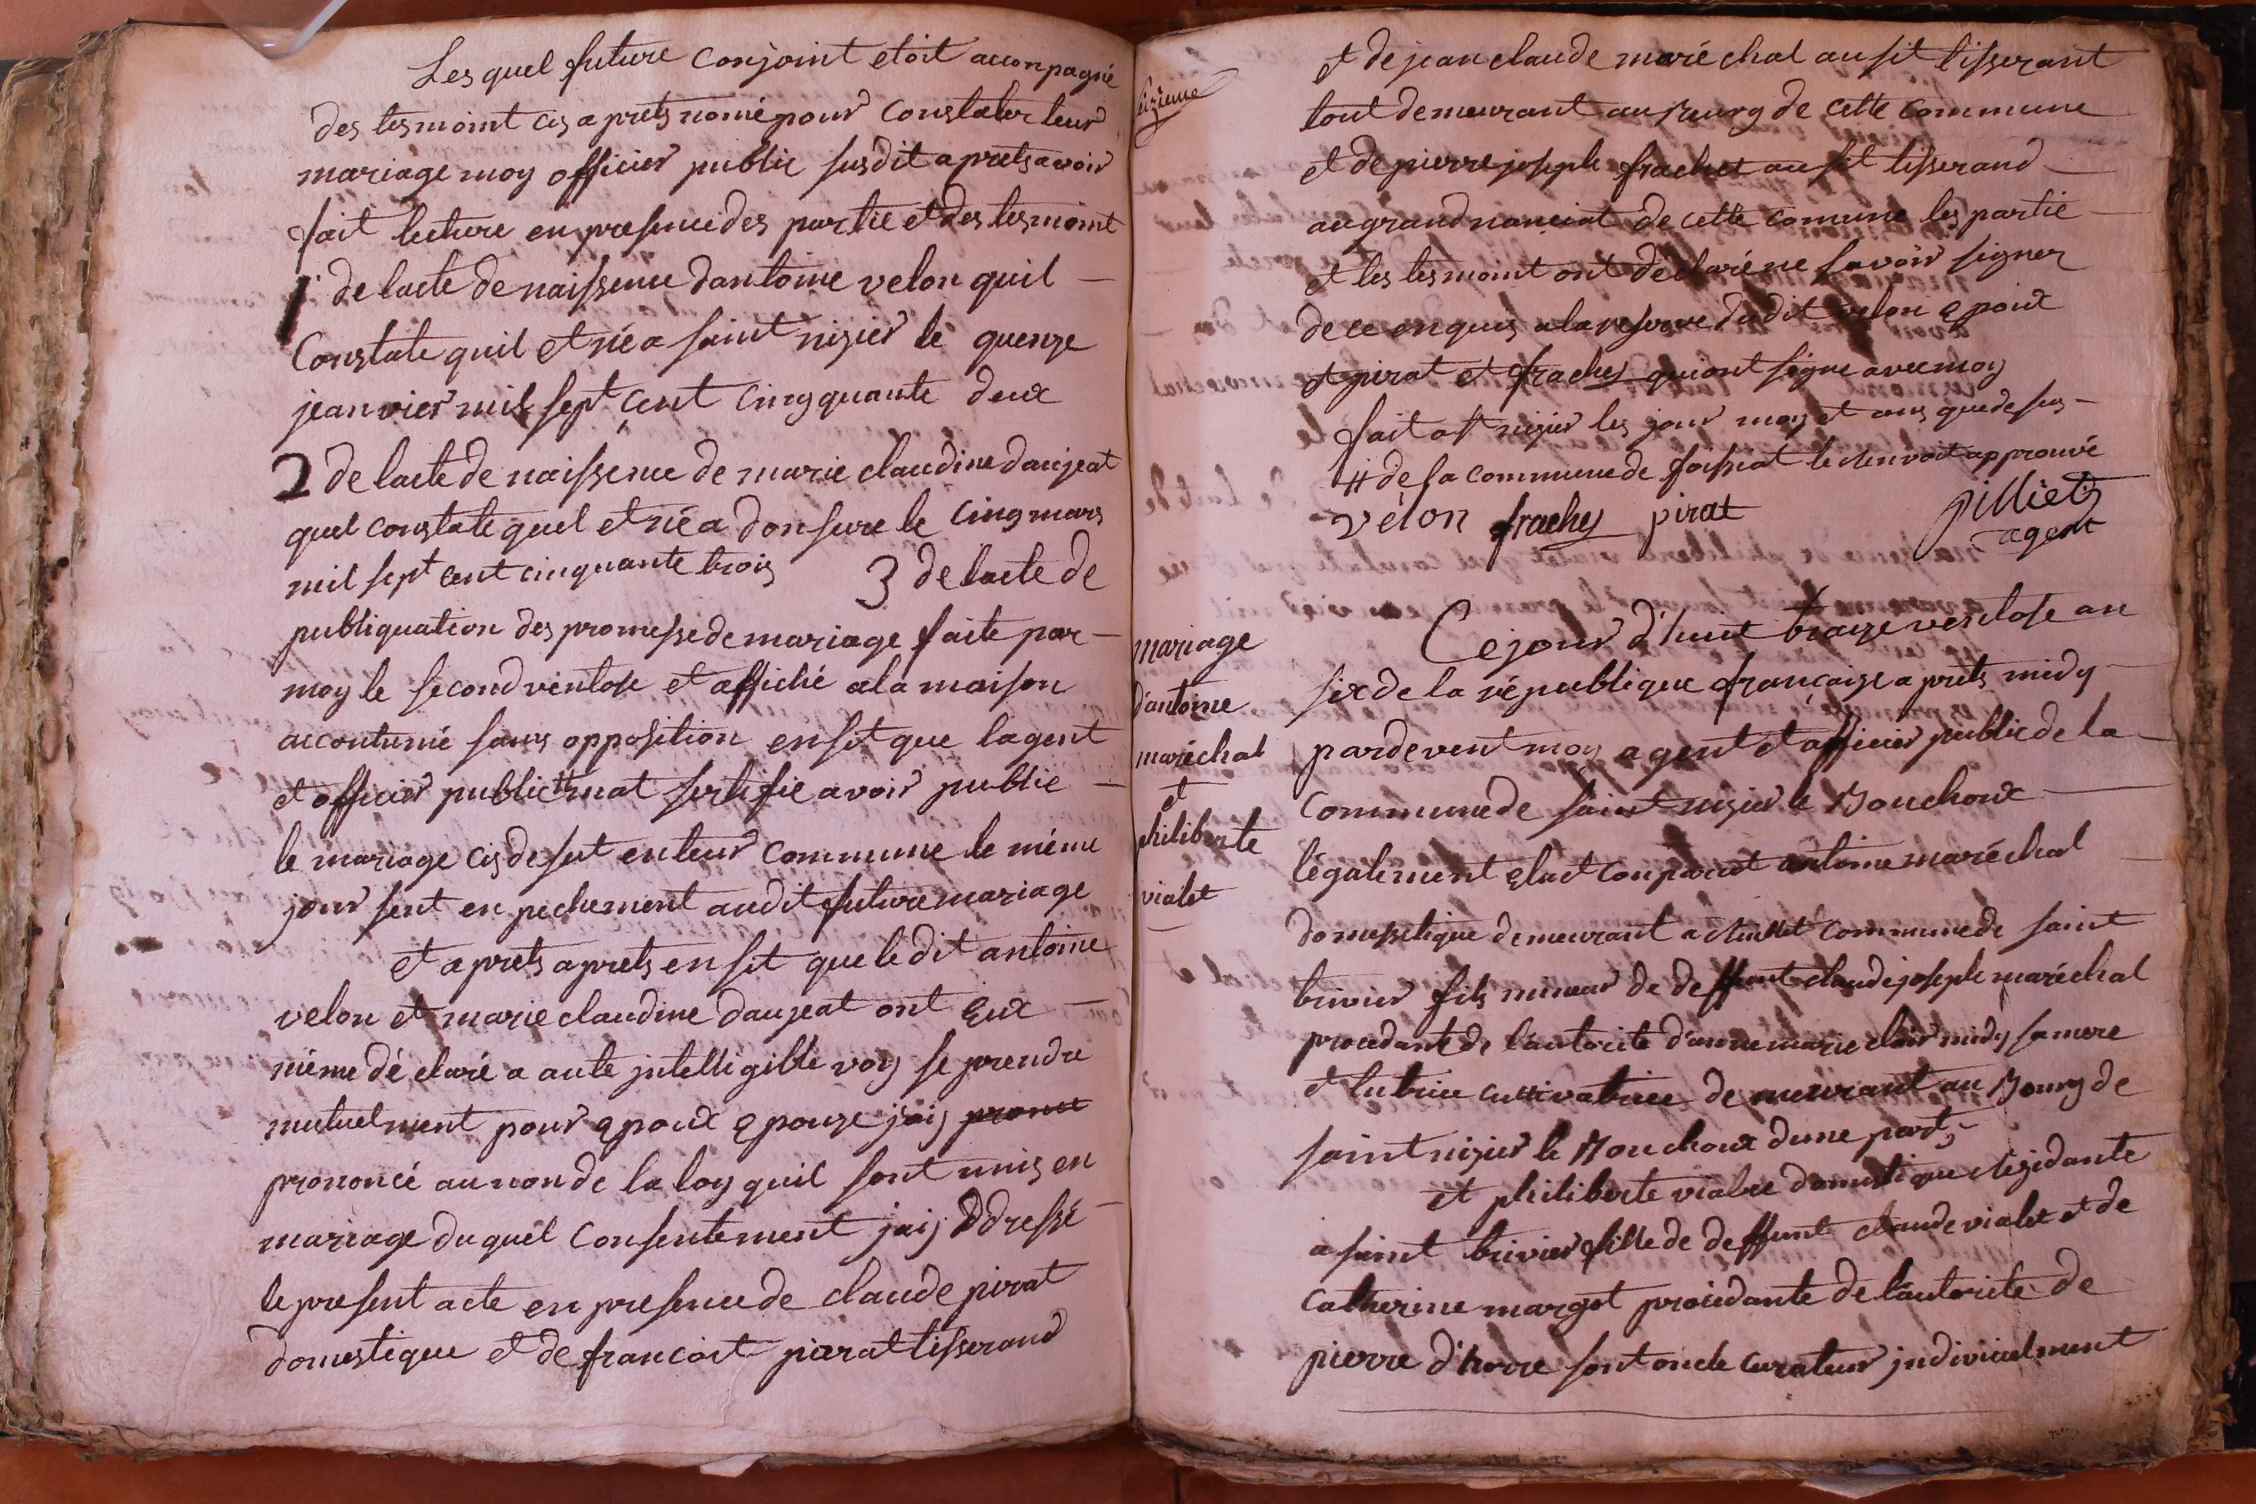 Les quel future conjoint etoit acconpagné
des tesmoint cy aprets nomé pour constater leur
mariage moy officier public susdit aprets avoir
fait lecture en presence des partie et des tesmoint
1 de lacte de naissence dantoine velon quil
Constate quil et né a saint nizier le quenze
jeanvier mil sept cent cinqquante deux
2 de lacte de naissence de marie claudine daujeat
quel constate quel et né a donsure le cinq mars
mil sept cent cinquante trois 3 de lacte de
publiquation des promesse de mariage faite par
moy le second ventose et affiché a la maison
accoutumé sans opposition ensit que lagent
et officier public mat sertifie avoir publié
le mariage cy desut en leur commune le même
jour sent enpechement audit future mariage
et aprets aprets ensit que ledit antoine
velon et marie claudine daujeat ont eux
même déclaré a aute jntelligible voy se prendre
mutuelment pour epoux epouze jaij pronce
prononcé au non de la loy quil sont unis en
mariage du quel consentement jaij Ddressé
le present acte en presence de claude pirat
domestique et de francoit pirat tisserand
sixieme
et de jean claude maréchal ausit tisserant
tout demeurant au Bourg de cette commune
et de pierre joseph frachet ausit tisserand
au grand nanciat de cette comune les partie
et les tesmoint ont déclaré ne savoir signer
de ce enquis a la reserve dudit velon epoux
et pirat et frachey qui ont signe avec moy
fait a st nizier les jour moy et ans que desus
# de la commune de foissiat le renvoit approuvé
velon frachey pirat pilliet
agent
mariage
d'antoine
maréchal
et
philiberte
vialet
Ce jour d'huit traize ventose an
six de la république francaize aprets midy
pardevent moy agent et officier public de la
commune de saint nizier le Bouchoux
légalement elut conparut antoine maréchal
domesstique demeurant a commune de saint
trivier fils mineur de deffunt claude joseph maréchal
procedant de l'autorite d'anne marie clair midy sa mere
et tutrice cultivatrice demeurant au Bourg de
saint nizier le Bouchoux dune part,
et philiberte vialet domestique rezidante
a saint trivier fille de deffunt claude vialet et de
catherine margot procedante de l'autorite de
pierre d'horre sont oncle curateur jndivicuelment